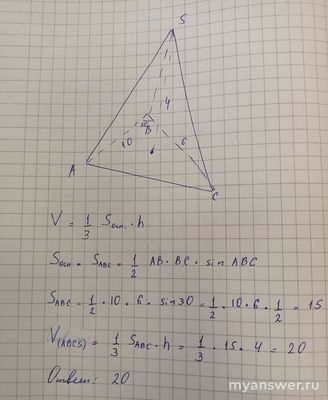 S
4
30
B
10
6
A
C
V = 1/3 Sосн. · h
Sосн = S_ABC = 1/2 AB · BC · sin ABC
S_ABC = 1/2 · 10 · 6 · sin30 = 1/2 · 10 · 6 · 1/2 = 15
V(ABCS) = 1/3 S_ABC · h = 1/3 · 15 · 4 = 20
Ответ: 20
myanswer.ru